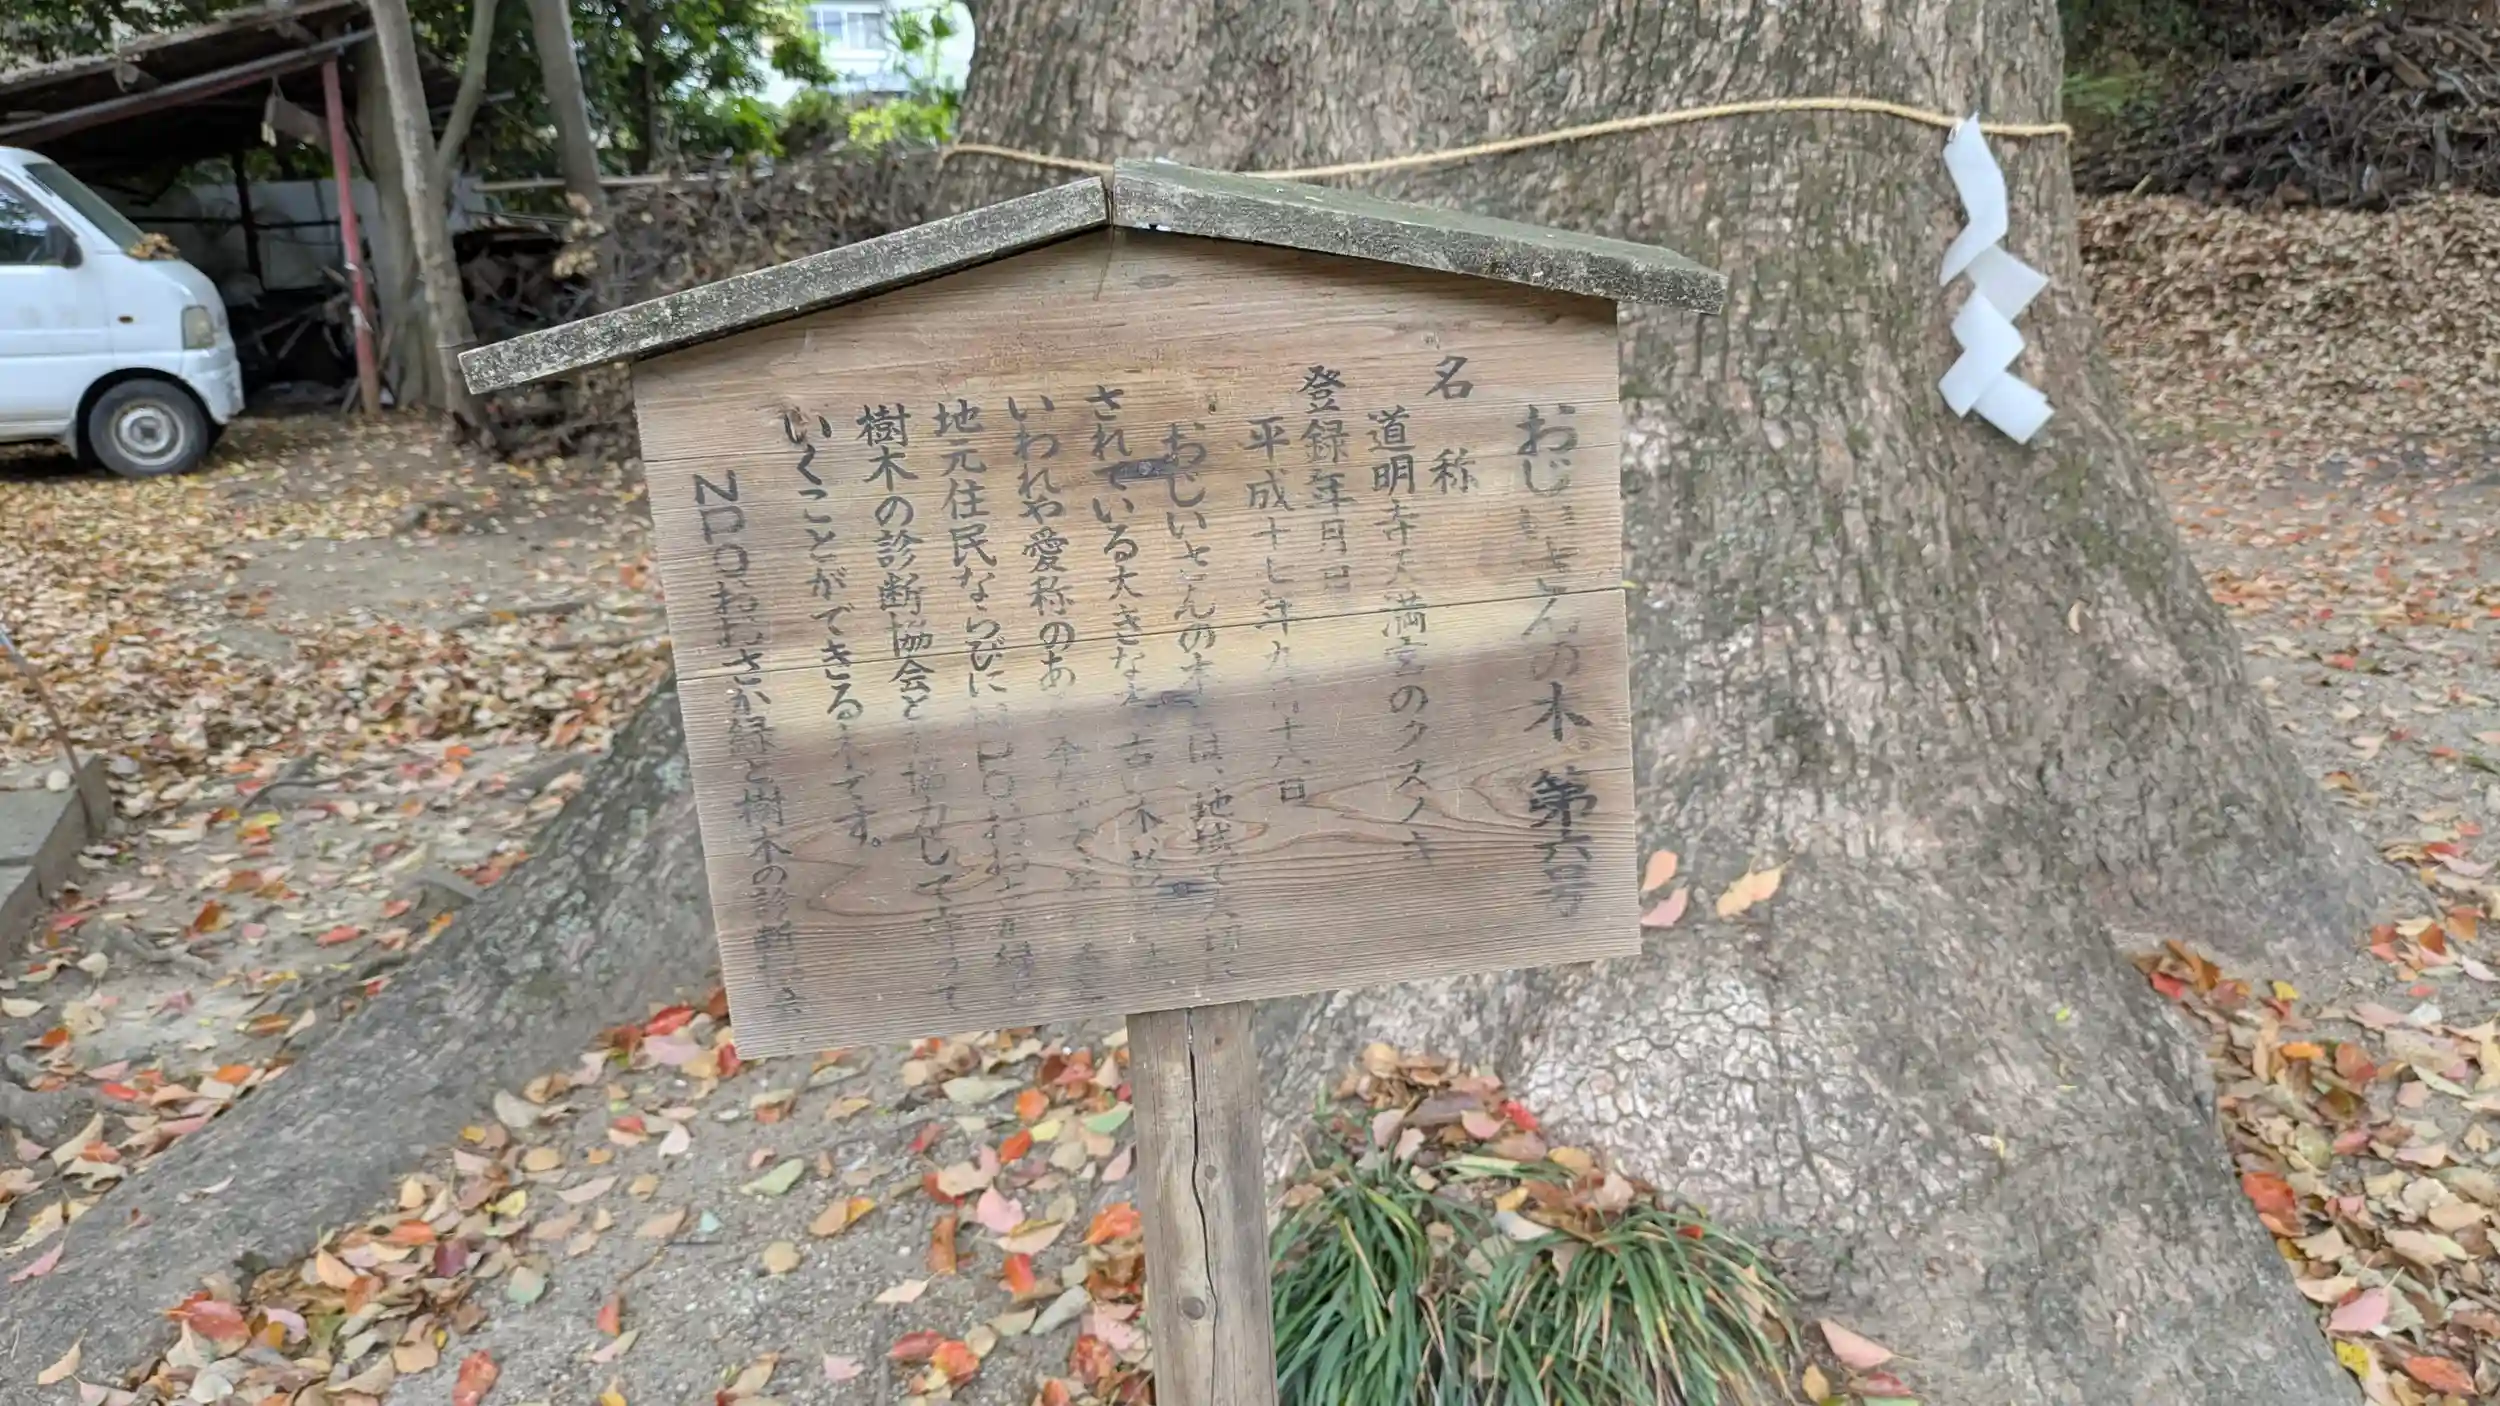 おじいさんの木 第六号
名称
道明寺天満宮のクスノキ
登録年月日
平成十七年九月十八日
おじいさんの木とは、地域で大切に
されている大きな木、古い木、
いわれや愛称のある木などで、
地元住民ならびにNPOおおさか緑と
樹木の診断協会とが協力して守って
いくことができる木です。
NPOおおさか緑と樹木の診断協会